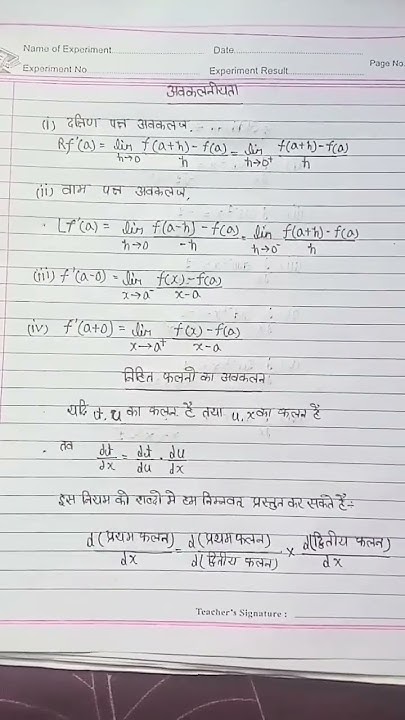 Name of Experiment Date
Page No.
Experiment No Experiment Result
अवकलनीयता
(i) दक्षिण पक्ष अवकलज,
Rf'(a) = lim h→0 f(a+h) - f(a) / h = lim h→0⁺ f(a+h) - f(a) / h
(ii) वाम पक्ष अवकलज,
Lf'(a) = lim h→0 f(a-h) - f(a) / -h = lim h→0⁻ f(a+h) - f(a) / h
(iii) f'(a-0) = lim x→a⁻ f(x) - f(a) / x-a
(iv) f'(a+0) = lim x→a⁺ f(x) - f(a) / x-a
निहित फलनो का अवकलन
यदि t, u का फलन है तथा u, x का फलन है
तब dt/dx = dt/du · du/dx
इस नियम को शब्दो मे हम निम्नवत् प्रस्तुत कर सकते है:-
d(प्रथम फलन)/dx = d(प्रथम फलन)/d(द्वितीय फलन) × d(द्वितीय फलन)/dx
Teacher's Signature :